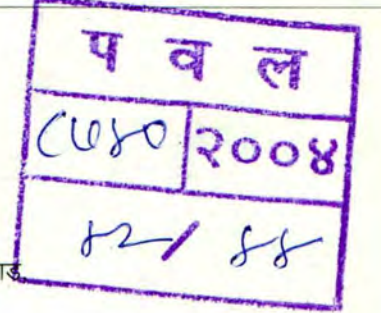 प व ल
८७४० २००४
४२ / ४४